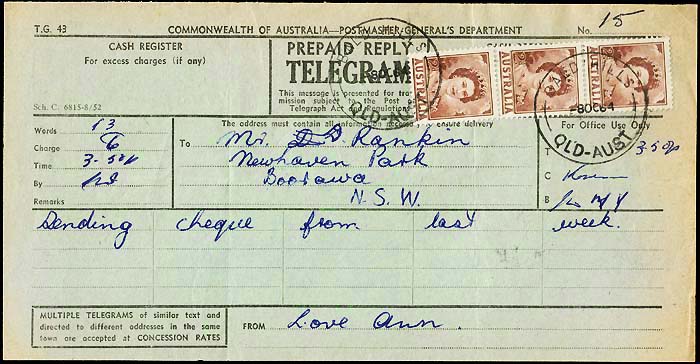 T.G. 43 COMMONWEALTH OF AUSTRALIA—POSTMASTER-GENERAL'S DEPARTMENT No. 15
CASH REGISTER
For excess charges (if any)
PREPAID REPLY
TELEGRAM
This message is presented for tra
mission subject to the Post
Telegraph Act and Regulations
AUSTRALIA AUSTRALIA AUSTRALIA
QLD-AUST
8 OC 64
QLD-AUST
Sch. C. 6815-8/52
The address must contain all information necessary to ensure delivery
For Office Use Only
Words 13
Charge 6
Time 3-50p
By
Remarks
To Mr. D Rankin
Newhaven Park
Boorawa
N. S. W.
3-50p
C
B
Sending cheque from last week.
MULTIPLE TELEGRAMS of similar text and
directed to different addresses in the same
town are accepted at CONCESSION RATES
FROM Love Ann.